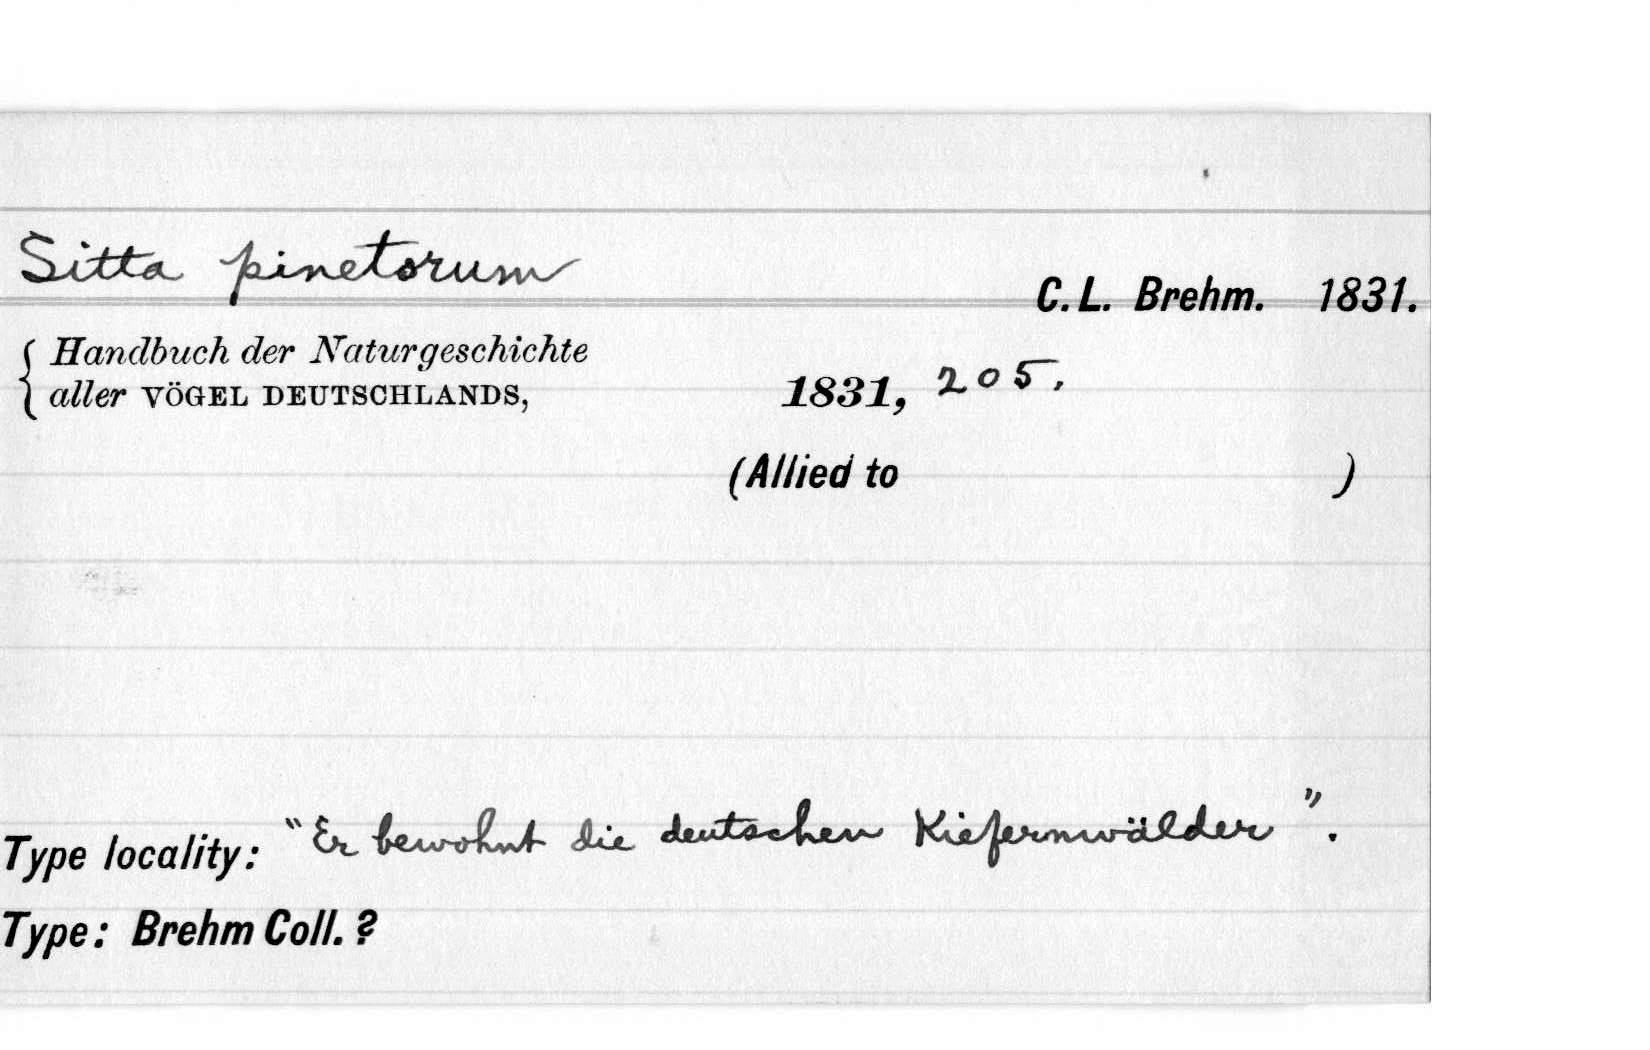 Sitta pinetorum
C. L. Brehm. 1831.
Handbuch der Naturgeschichte
aller VÖGEL DEUTSCHLANDS, 1831, 205.
(Allied to )
Type locality: "Er bewohnt die deutschen Kiefernwälder".
Type: Brehm Coll. ?